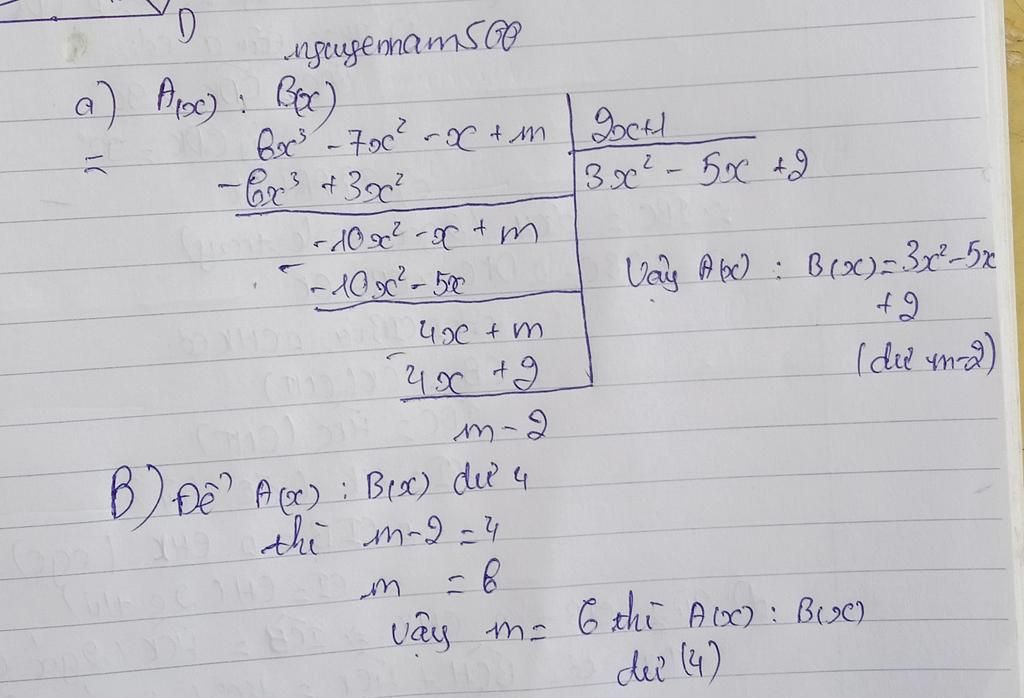 D
nguyennam500
a) A(x) : B(x)
= 6x³ - 7x² - x + m | 2x+1
- 6x³ + 3x² | 3x² - 5x + 2
-10x² - x + m
- -10x² - 5x
Vậy A(x) : B(x) = 3x² - 5x
+2
4x + m
(dư m-2)
- 4x + 2
m - 2
B) Để A(x) : B(x) dư 4
thì m-2 = 4
m = 6
Vậy m = 6 thì A(x) : B(x)
dư (4)